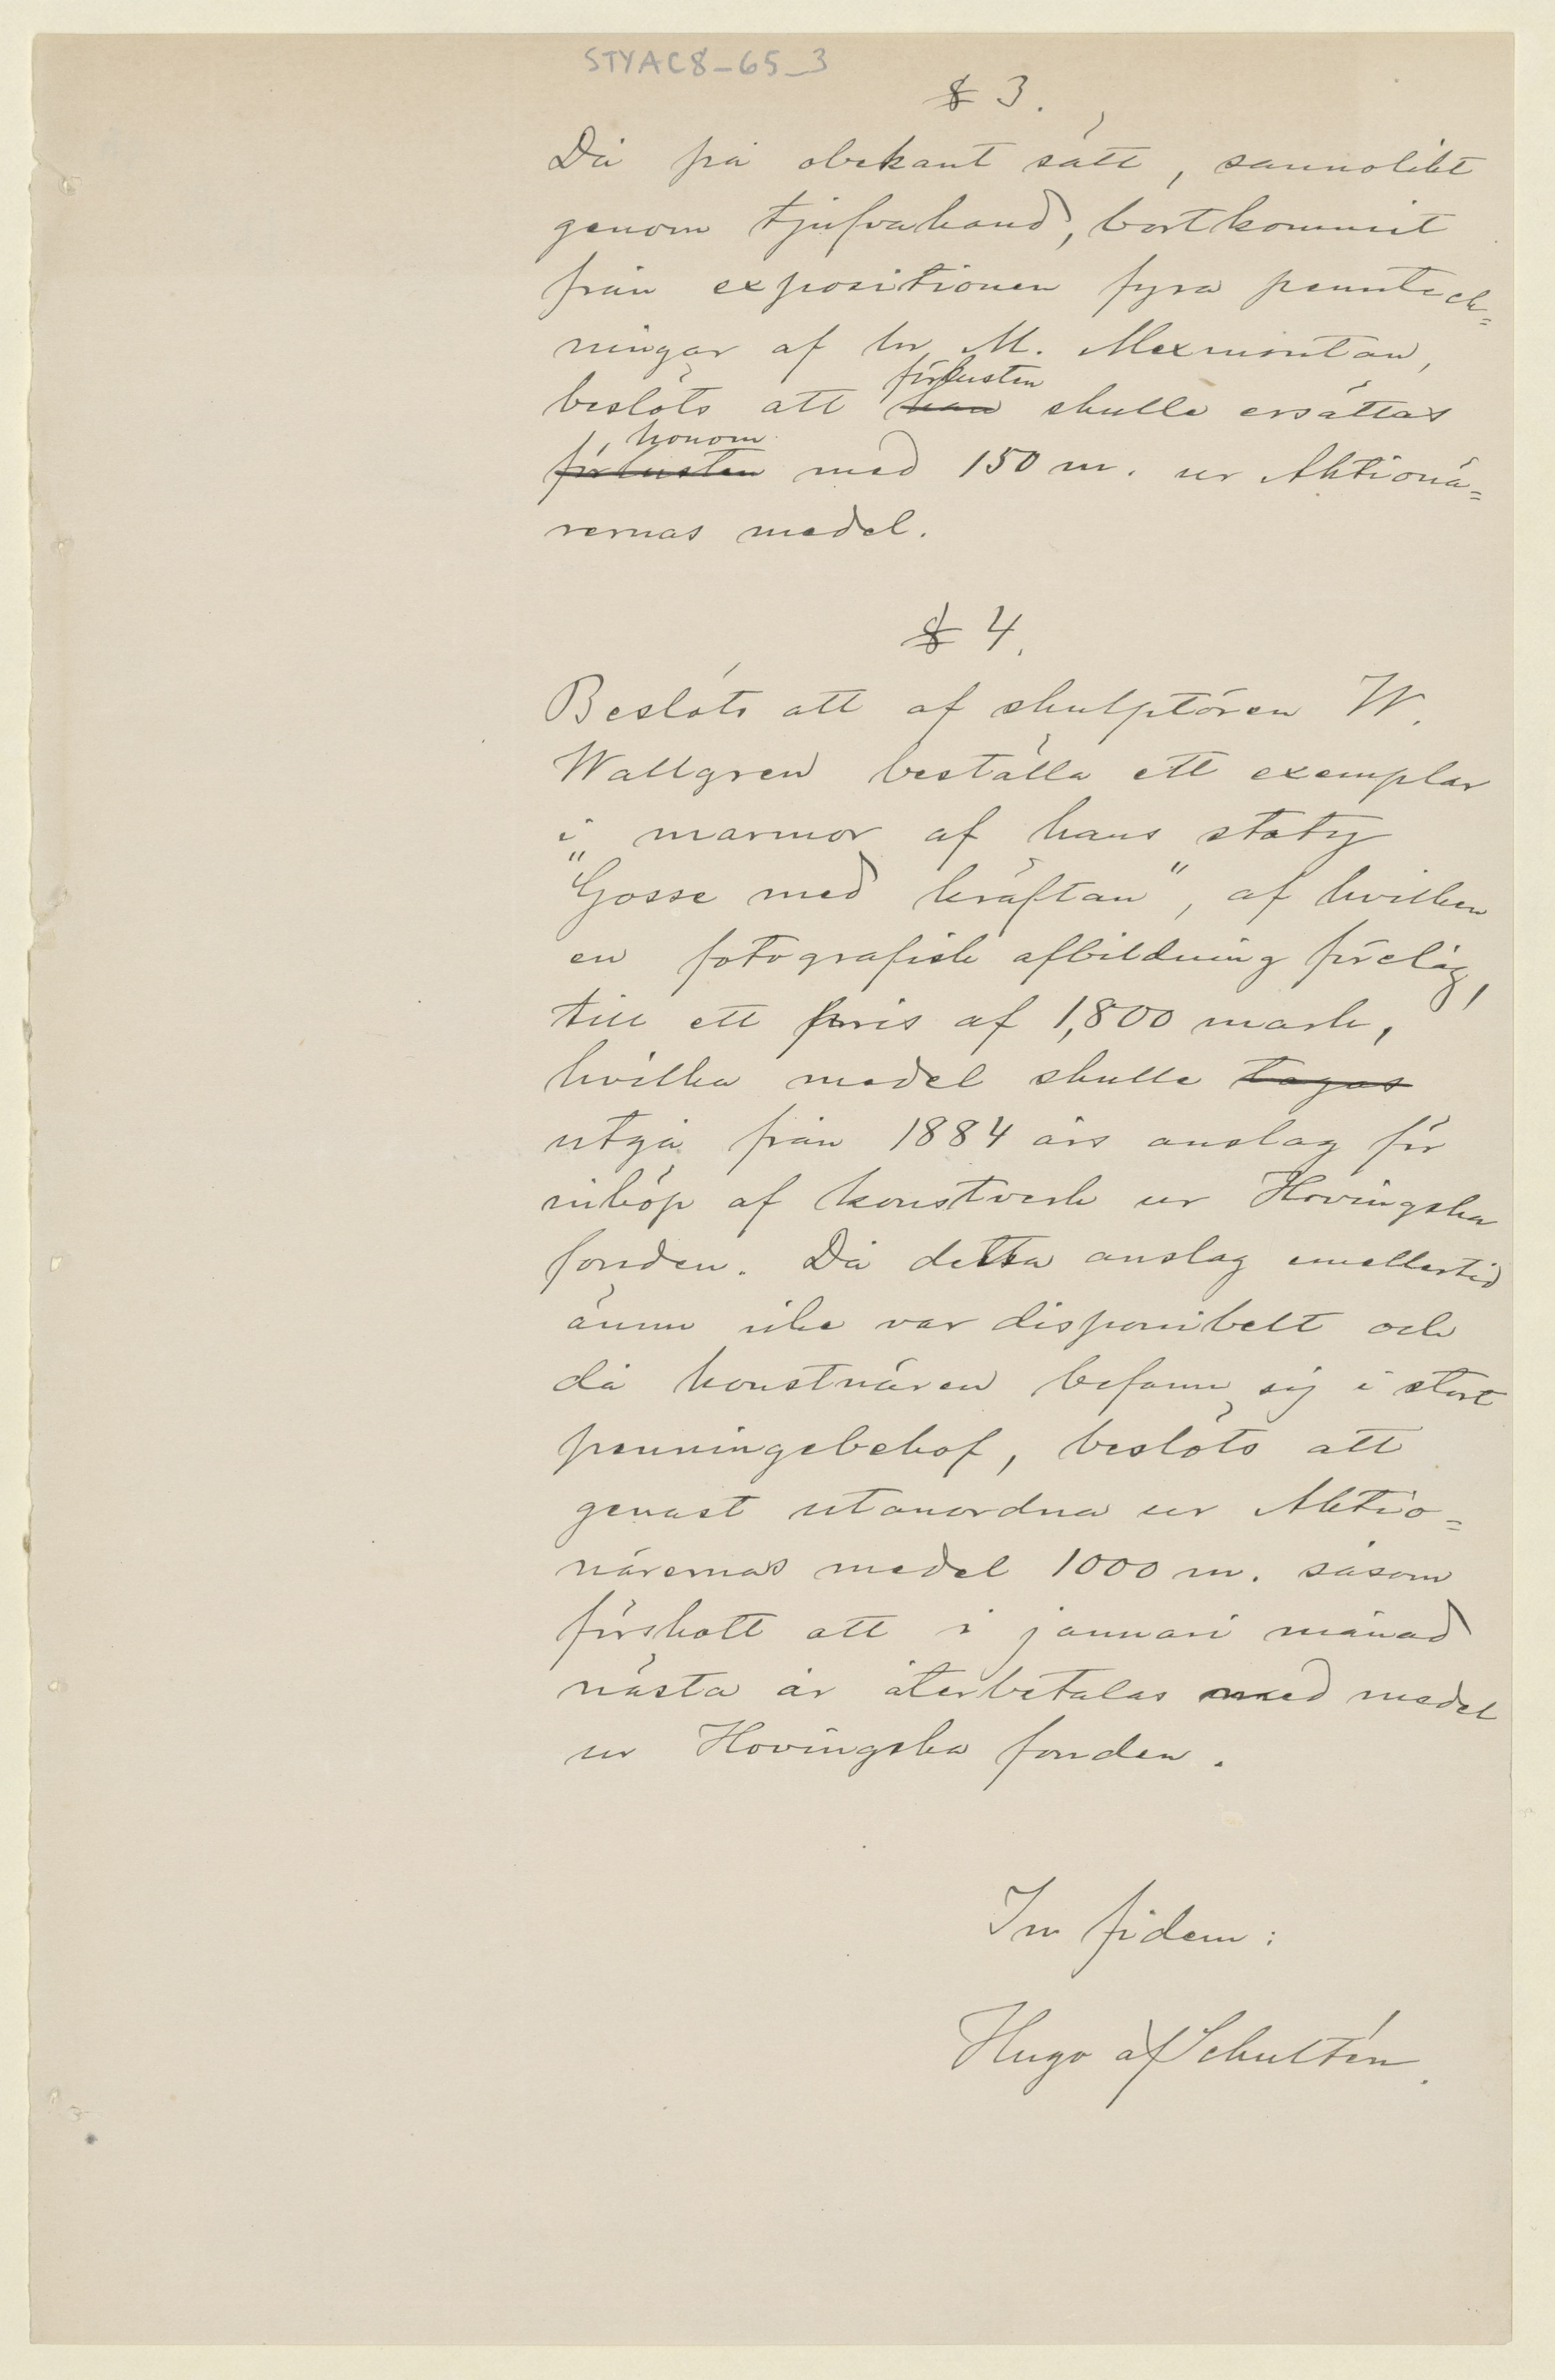 STYAC8-65_3
§ 3.
Då på obekant sätt, sannolikt
genom tjufvahand, bortkommit
från expositionen fyra pennteck=
ningar af hr M. Mexmontan,
förlusten
beslöts att han skulle ersättas
honom
förlusten med 150 m. ur Aktionä=
rernas medel.
§ 4.
Beslöts att af skulptören W.
Wallgren beställa ett exemplar
i marmor af hans staty
"Gosse med kräftan", af hvilken
en fotografisk afbildning förelåg,
till ett pris af 1,800 mark,
hvilka medel skulle tagas
utgå från 1884 års anslag för
inköp af konstverk ur Hovingska
fonden. Då detta anslag emellertid
ännu icke var disponibelt och
då konstnären befann sig i stort
penningebehof, beslöts att
genast utanordna ur Aktio=
närernas medel 1000 m. såsom
förskott att i januari månad
nästa år återbetalas med medel
ur Hovingska fonden.
In fidem:
Hugo af Schultén.